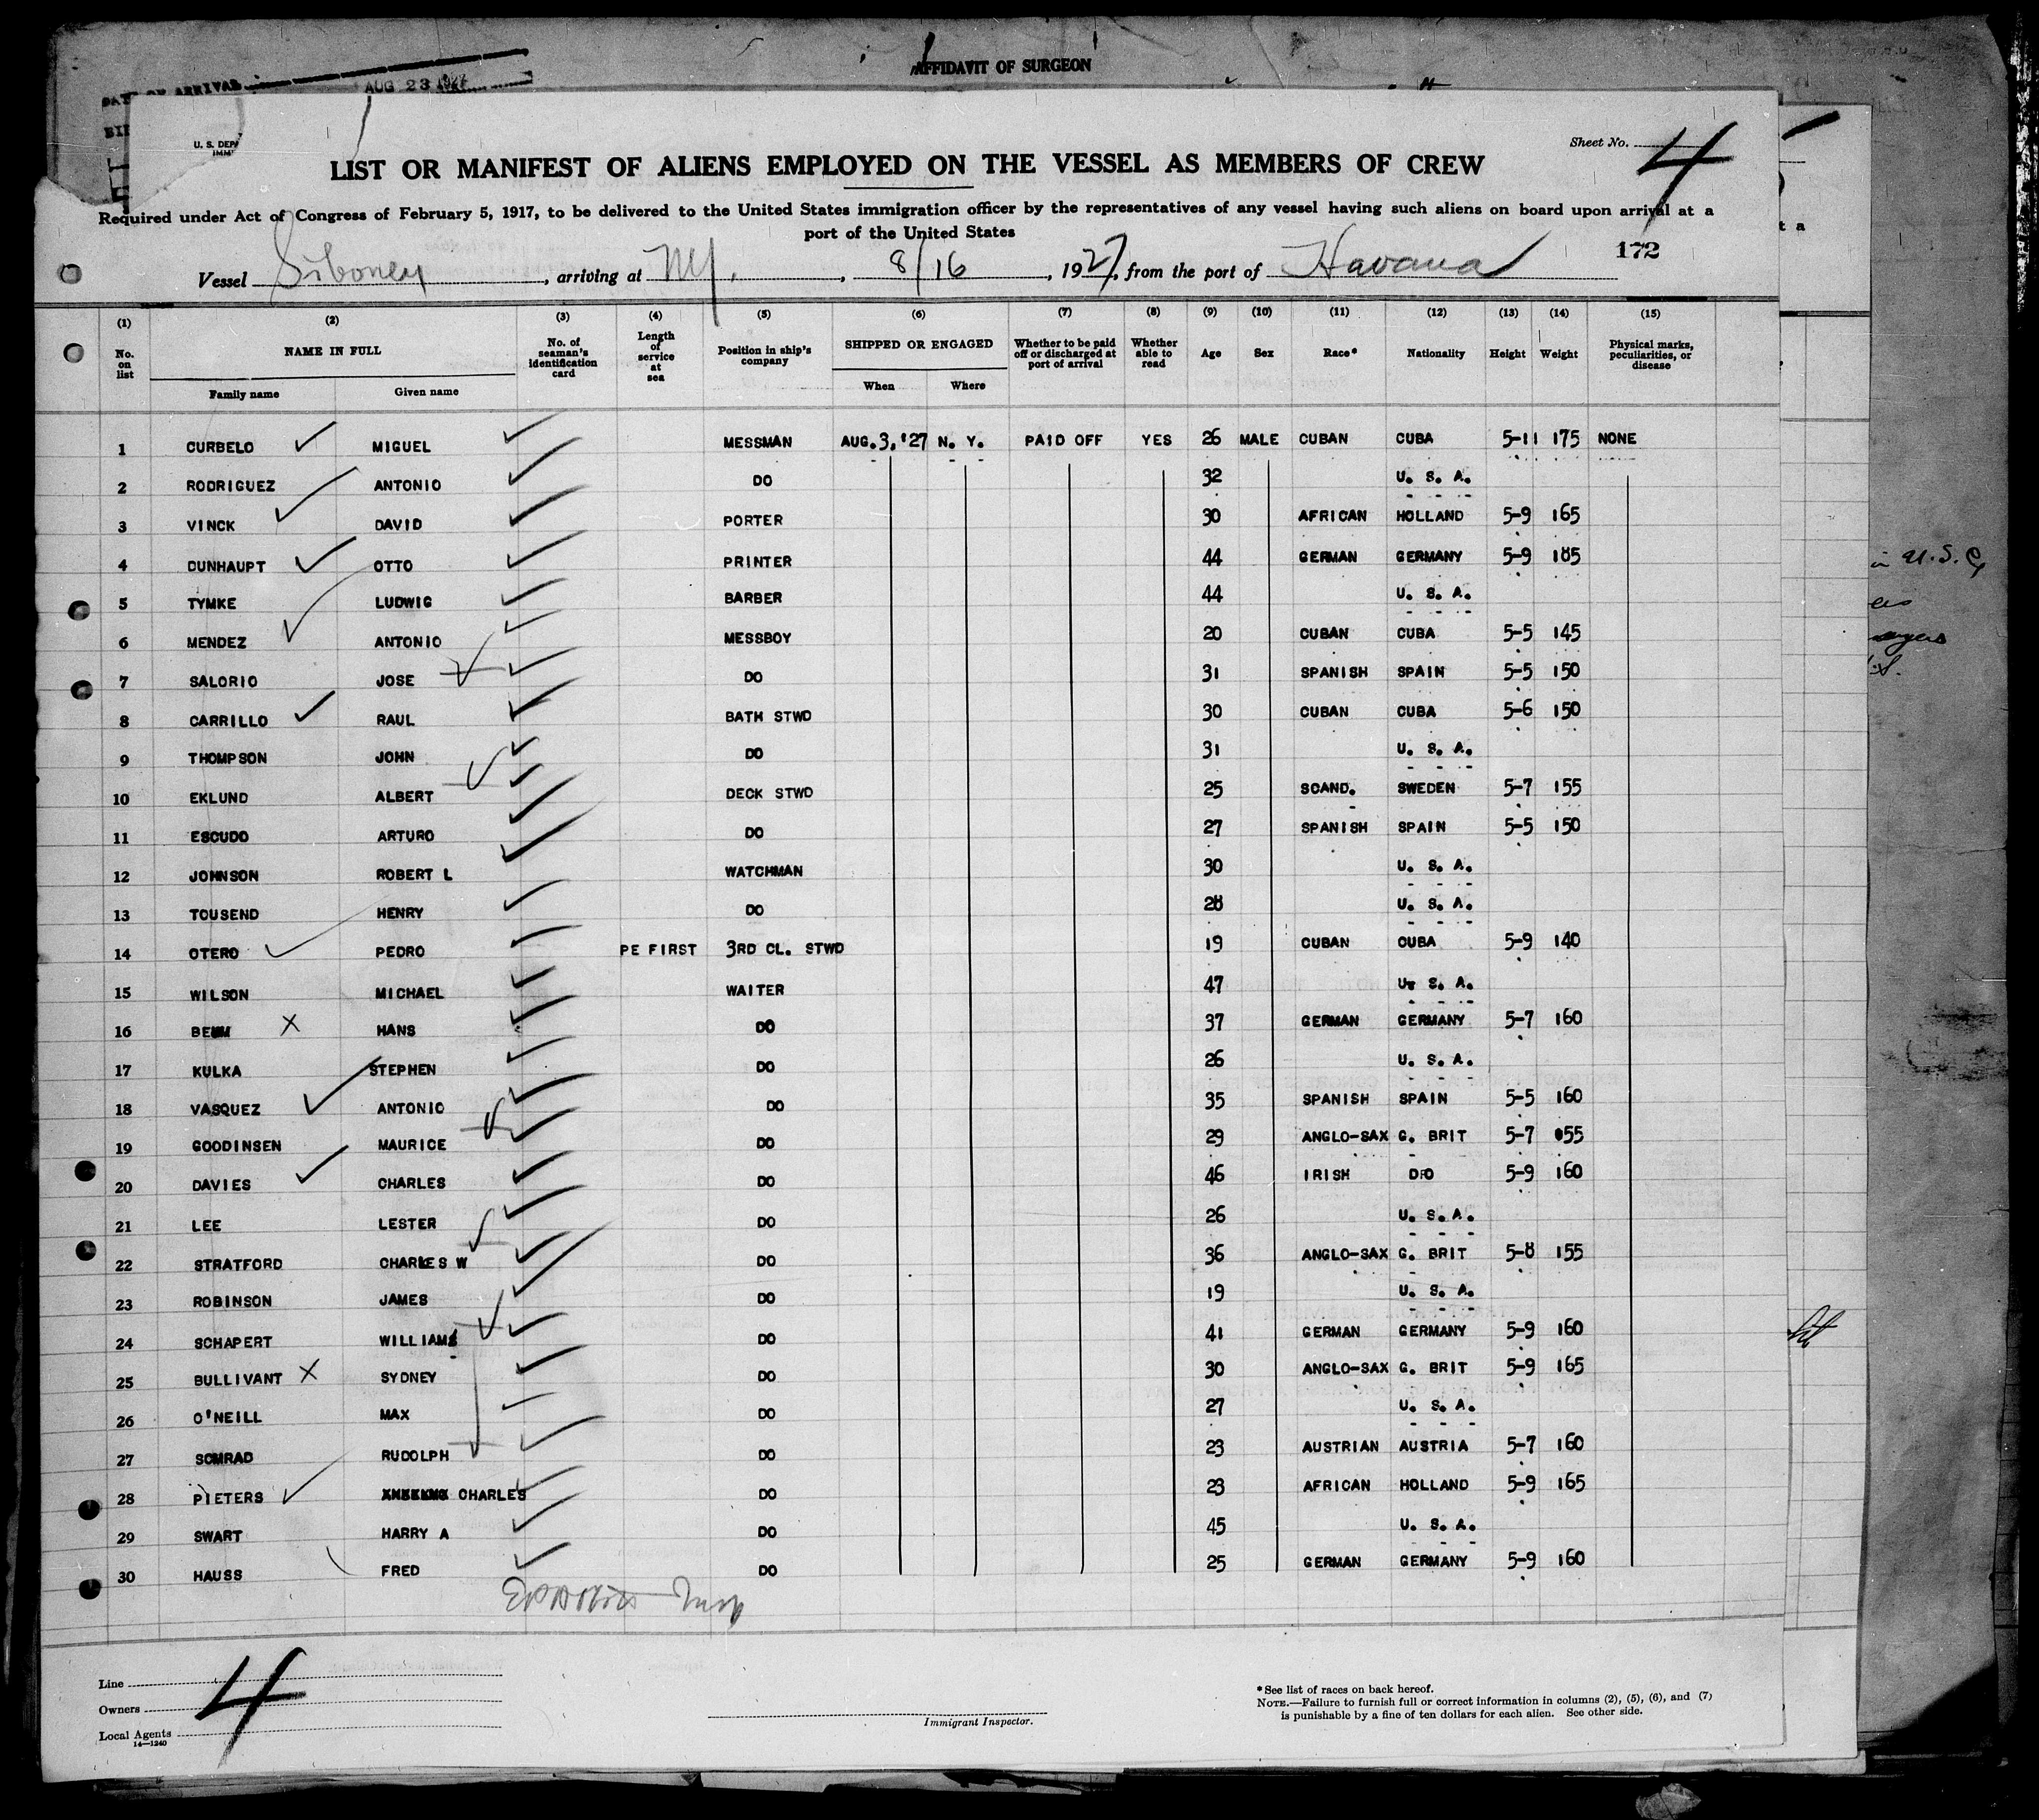 AFFIDAVIT OF SURGEON
AUG 23 1927
U. S. DEPA
IMMI
Sheet No. 4
LIST OR MANIFEST OF ALIENS EMPLOYED ON THE VESSEL AS MEMBERS OF CREW
Required under Act of Congress of February 5, 1917, to be delivered to the United States immigration officer by the representatives of any vessel having such aliens on board upon arrival at a
port of the United States
172
Vessel Siboney, arriving at NY., 8/16, 1927, from the port of Havana
(1) (2) (3) (4) (5) (6) (7) (8) (9) (10) (11) (12) (13) (14) (15)
No. on list NAME IN FULL No. of seaman's identification card Length of service at sea Position in ship's company SHIPPED OR ENGAGED Whether to be paid off or discharged at port of arrival Whether able to read Age Sex Race* Nationality Height Weight Physical marks, peculiarities, or disease
Family name Given name When Where
1 CURBELO MIGUEL MESSMAN AUG.3,'27 N. Y. PAID OFF YES 26 MALE CUBAN CUBA 5-11 175 NONE
2 RODRIGUEZ ANTONIO DO 32 U. S. A.
3 VINCK DAVID PORTER 30 AFRICAN HOLLAND 5-9 165
4 DUNHAUPT OTTO PRINTER 44 GERMAN GERMANY 5-9 185
5 TYMKE LUDWIG BARBER 44 U. S. A.
6 MENDEZ ANTONIO MESSBOY 20 CUBAN CUBA 5-5 145
7 SALORIO JOSE DO 31 SPANISH SPAIN 5-5 150
8 CARRILLO RAUL BATH STWD 30 CUBAN CUBA 5-6 150
9 THOMPSON JOHN DO 31 U. S. A.
10 EKLUND ALBERT DECK STWD 25 SCAND. SWEDEN 5-7 155
11 ESCUDO ARTURO DO 27 SPANISH SPAIN 5-5 150
12 JOHNSON ROBERT L WATCHMAN 30 U. S. A.
13 TOUSEND HENRY DO 28 U. S. A.
14 OTERO PEDRO PE FIRST 3RD CL. STWD 19 CUBAN CUBA 5-9 140
15 WILSON MICHAEL WAITER 47 U. S. A.
16 BEMM HANS DO 37 GERMAN GERMANY 5-7 160
17 KULKA STEPHEN DO 26 U. S. A.
18 VASQUEZ ANTONIO DO 35 SPANISH SPAIN 5-5 160
19 GOODINSEN MAURICE DO 29 ANGLO-SAX G. BRIT 5-7 155
20 DAVIES CHARLES DO 46 IRISH DO 5-9 160
21 LEE LESTER DO 26 U. S. A.
22 STRATFORD CHARLES W DO 36 ANGLO-SAX G. BRIT 5-8 155
23 ROBINSON JAMES DO 19 U. S. A.
24 SCHAPERT WILLIAMS DO 41 GERMAN GERMANY 5-9 160
25 BULLIVANT SYDNEY DO 30 ANGLO-SAX G. BRIT 5-9 165
26 O'NEILL MAX DO 27 U. S. A.
27 SOMRAD RUDOLPH DO 23 AUSTRIAN AUSTRIA 5-7 160
28 PIETERS CHARLES DO 23 AFRICAN HOLLAND 5-9 165
29 SWART HARRY A DO 45 U. S. A.
30 HAUSS FRED DO 25 GERMAN GERMANY 5-9 160
Line
Owners
Local Agents
14—1240
4
Immigrant Inspector.
*See list of races on back hereof.
NOTE.—Failure to furnish full or correct information in columns (2), (5), (6), and (7)
is punishable by a fine of ten dollars for each alien. See other side.